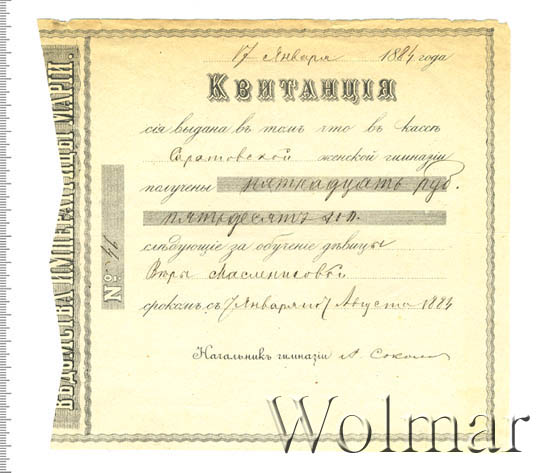 ВѢДОМСТВА ИМПЕРАТРИЦЫ МАРІИ.
17 Января 1884 года
КВИТАНЦІЯ
сія выдана въ томъ что въ кассѣ
Саратовской женской гимназіи
получены пятнадцать руб.
пятьдесятъ коп.
слѣдующіе за обученіе дѣвицы
Вѣры
срокомъ съ 7 Января по 7 Августа 1884
Начальникъ гимназіи А
№
Wolmar